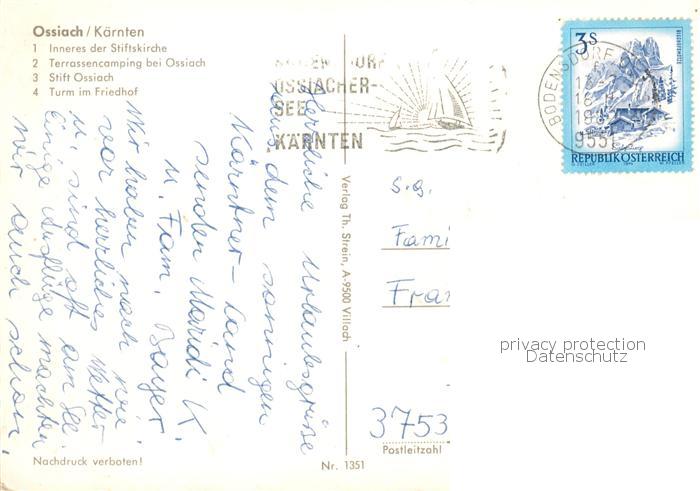 Ossiach / Kärnten
1 Inneres der Stiftskirche
2 Terrassencamping bei Ossiach
3 Stift Ossiach
4 Turm im Friedhof
DORF
OSSIACHER-
SEE
KÄRNTEN
BODENSDORF
955
3S
REPUBLIK ÖSTERREICH
Herrliche Urlaubsgrüße
aus dem sonnigen
Kärntner-Land
senden Maridi K.
u. Fam. Bayer.
Wir haben nach wie
vor herrliches Wetter
u. sind oft am See.
Einige Ausflüge machten
wir auch schon.
Verlag Th. Strein, A-9500 Villach
S.g.
Fami
Fran
privacy protection
Datenschutz
3753
Postleitzahl
Nachdruck verboten!
Nr. 1351